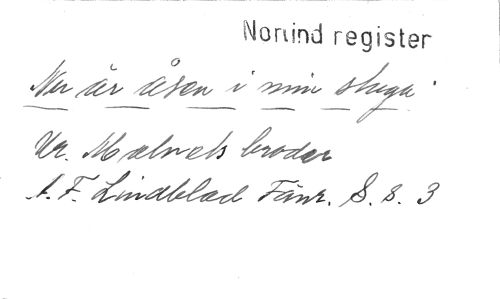 Nonind register
Nu är åsen i min stuga
Ur. Malvets broder
A. F. Lindblad Fänr. S. s. 3